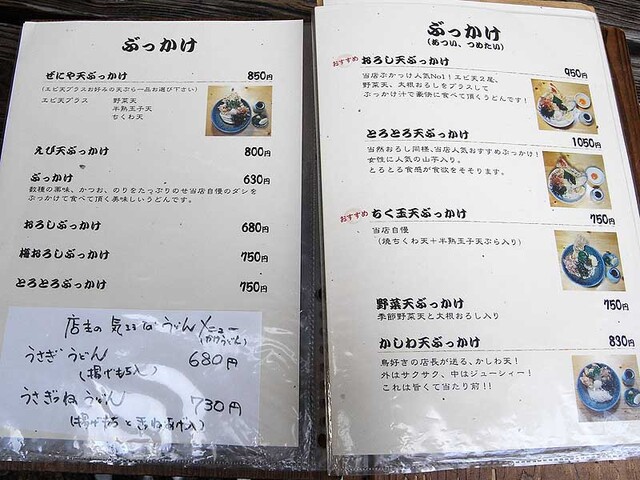 ぶっかけ
ぜにや天ぶっかけ 850円
(エビ天プラスお好みの天ぷら一品お選び下さい)
エビ天プラス 野菜天
半熟玉子天
ちくわ天
えび天ぶっかけ 800円
ぶっかけ 630円
数種の薬味、かつお、のりをたっぷりのせ当店自慢のダシを
ぶっかけて食べて頂く美味しいうどんです。
おろしぶっかけ 680円
梅おろしぶっかけ 750円
とろとろぶっかけ 750円
店主の気まぐれうどんメニュー
(かけうどん)
うさぎうどん 680円
(揚げもち入)
うさぎつねうどん 730円
(揚げもちときつねあげ入)
ぶっかけ
(あつい、つめたい)
おすすめ おろし天ぶっかけ 950円
当店ぶかっけ人気No1!エビ天2尾、
野菜天、大根おろしをプラスして
ぶっかけ汁で豪快に食べて頂くうどんです!
とろとろ天ぶっかけ 1050円
当然おろし同様、当店人気おすすめぶっかけ!
女性に人気の山芋入り。
とろとろ食感が食欲をそそります。
おすすめ ちく玉天ぶっかけ 750円
当店自慢
(焼ちくわ天+半熟玉子天ぷら入り)
野菜天ぶっかけ 750円
季節野菜天と大根おろし入り
かしわ天ぶっかけ 830円
鳥好きの店長が送る、かしわ天!
外はサクサク、中はジューシィー!
これは旨くて当たり前!!